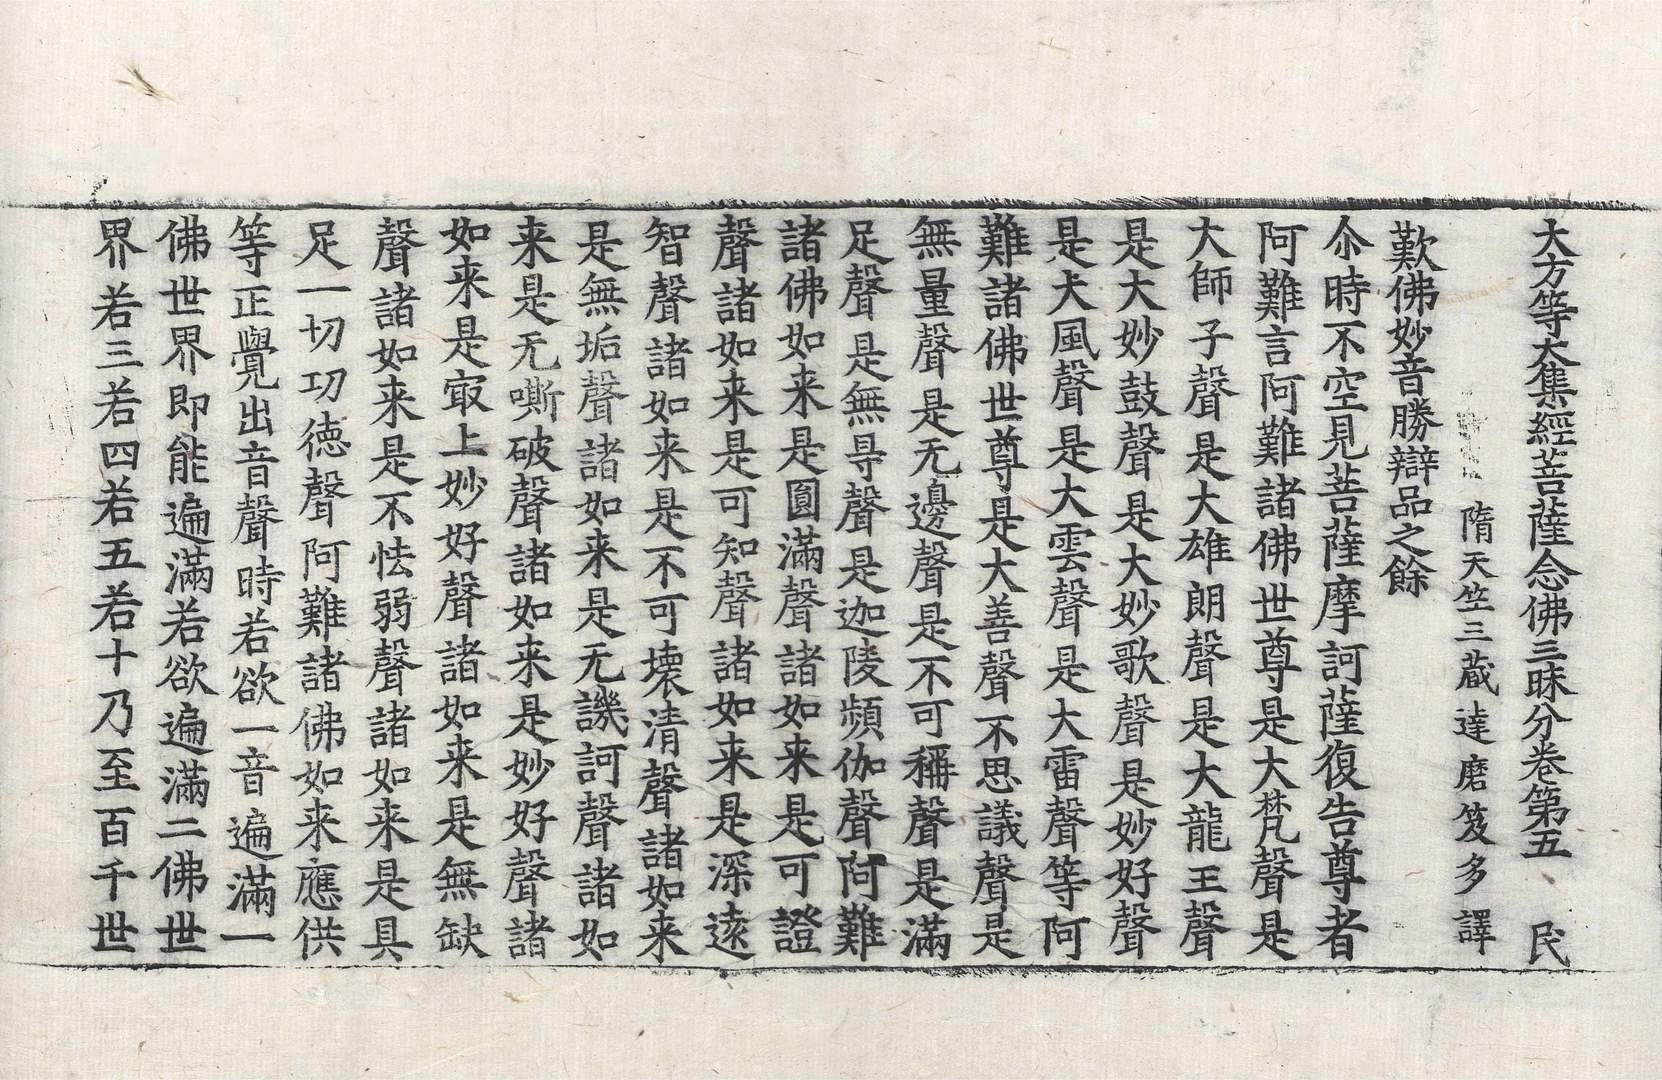 大方等大集經菩薩念佛三昧分卷第五　民
隋天竺三蔵達磨笈多譯
歎佛妙音勝辯品之餘
尒時不空見菩薩摩訶薩復告尊者
阿難言阿難諸佛世尊是大梵聲是
大師子聲是大雄朗聲是大龍王聲
是大妙鼓聲是大妙歌聲是妙好聲
是大風聲是大雲聲是大雷聲等阿
難諸佛世尊是大善聲不思議聲是
無量聲是无邊聲是不可稱聲是滿
足聲是無㝵聲是迦陵頻伽聲阿難
諸佛如来是圓滿聲諸如来是可證
聲諸如来是可知聲諸如来是深遠
智聲諸如来是不可壊清聲諸如来
是無垢聲諸如来是无譏訶聲諸如
来是无嘶破聲諸如来是妙好聲諸
如来是㝡上妙好聲諸如来是無缺
聲諸如来是不怯弱聲諸如来是具
足一切功徳聲阿難諸佛如来應供
等正覺出音聲時若欲一音遍滿一
佛世界即能遍滿若欲遍滿二佛世
界若三若四若五若十乃至百千世